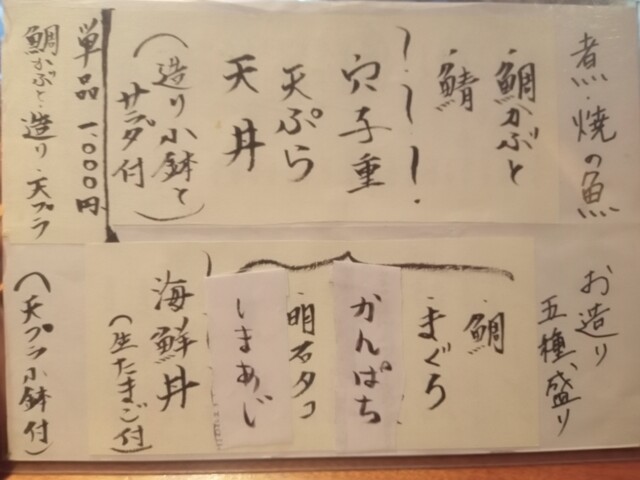 煮・焼の魚
・鯛かぶと
・鯖
穴子重
天ぷら
天丼
(造り小鉢と
サラダ付)
単品 1,000円
鯛かぶと・造り・天プラ
お造り
五種盛り
・鯛
・まぐろ
かんぱち
・明石タコ
しまあじ
海鮮丼
(生たまご付)
(天プラ小鉢付)